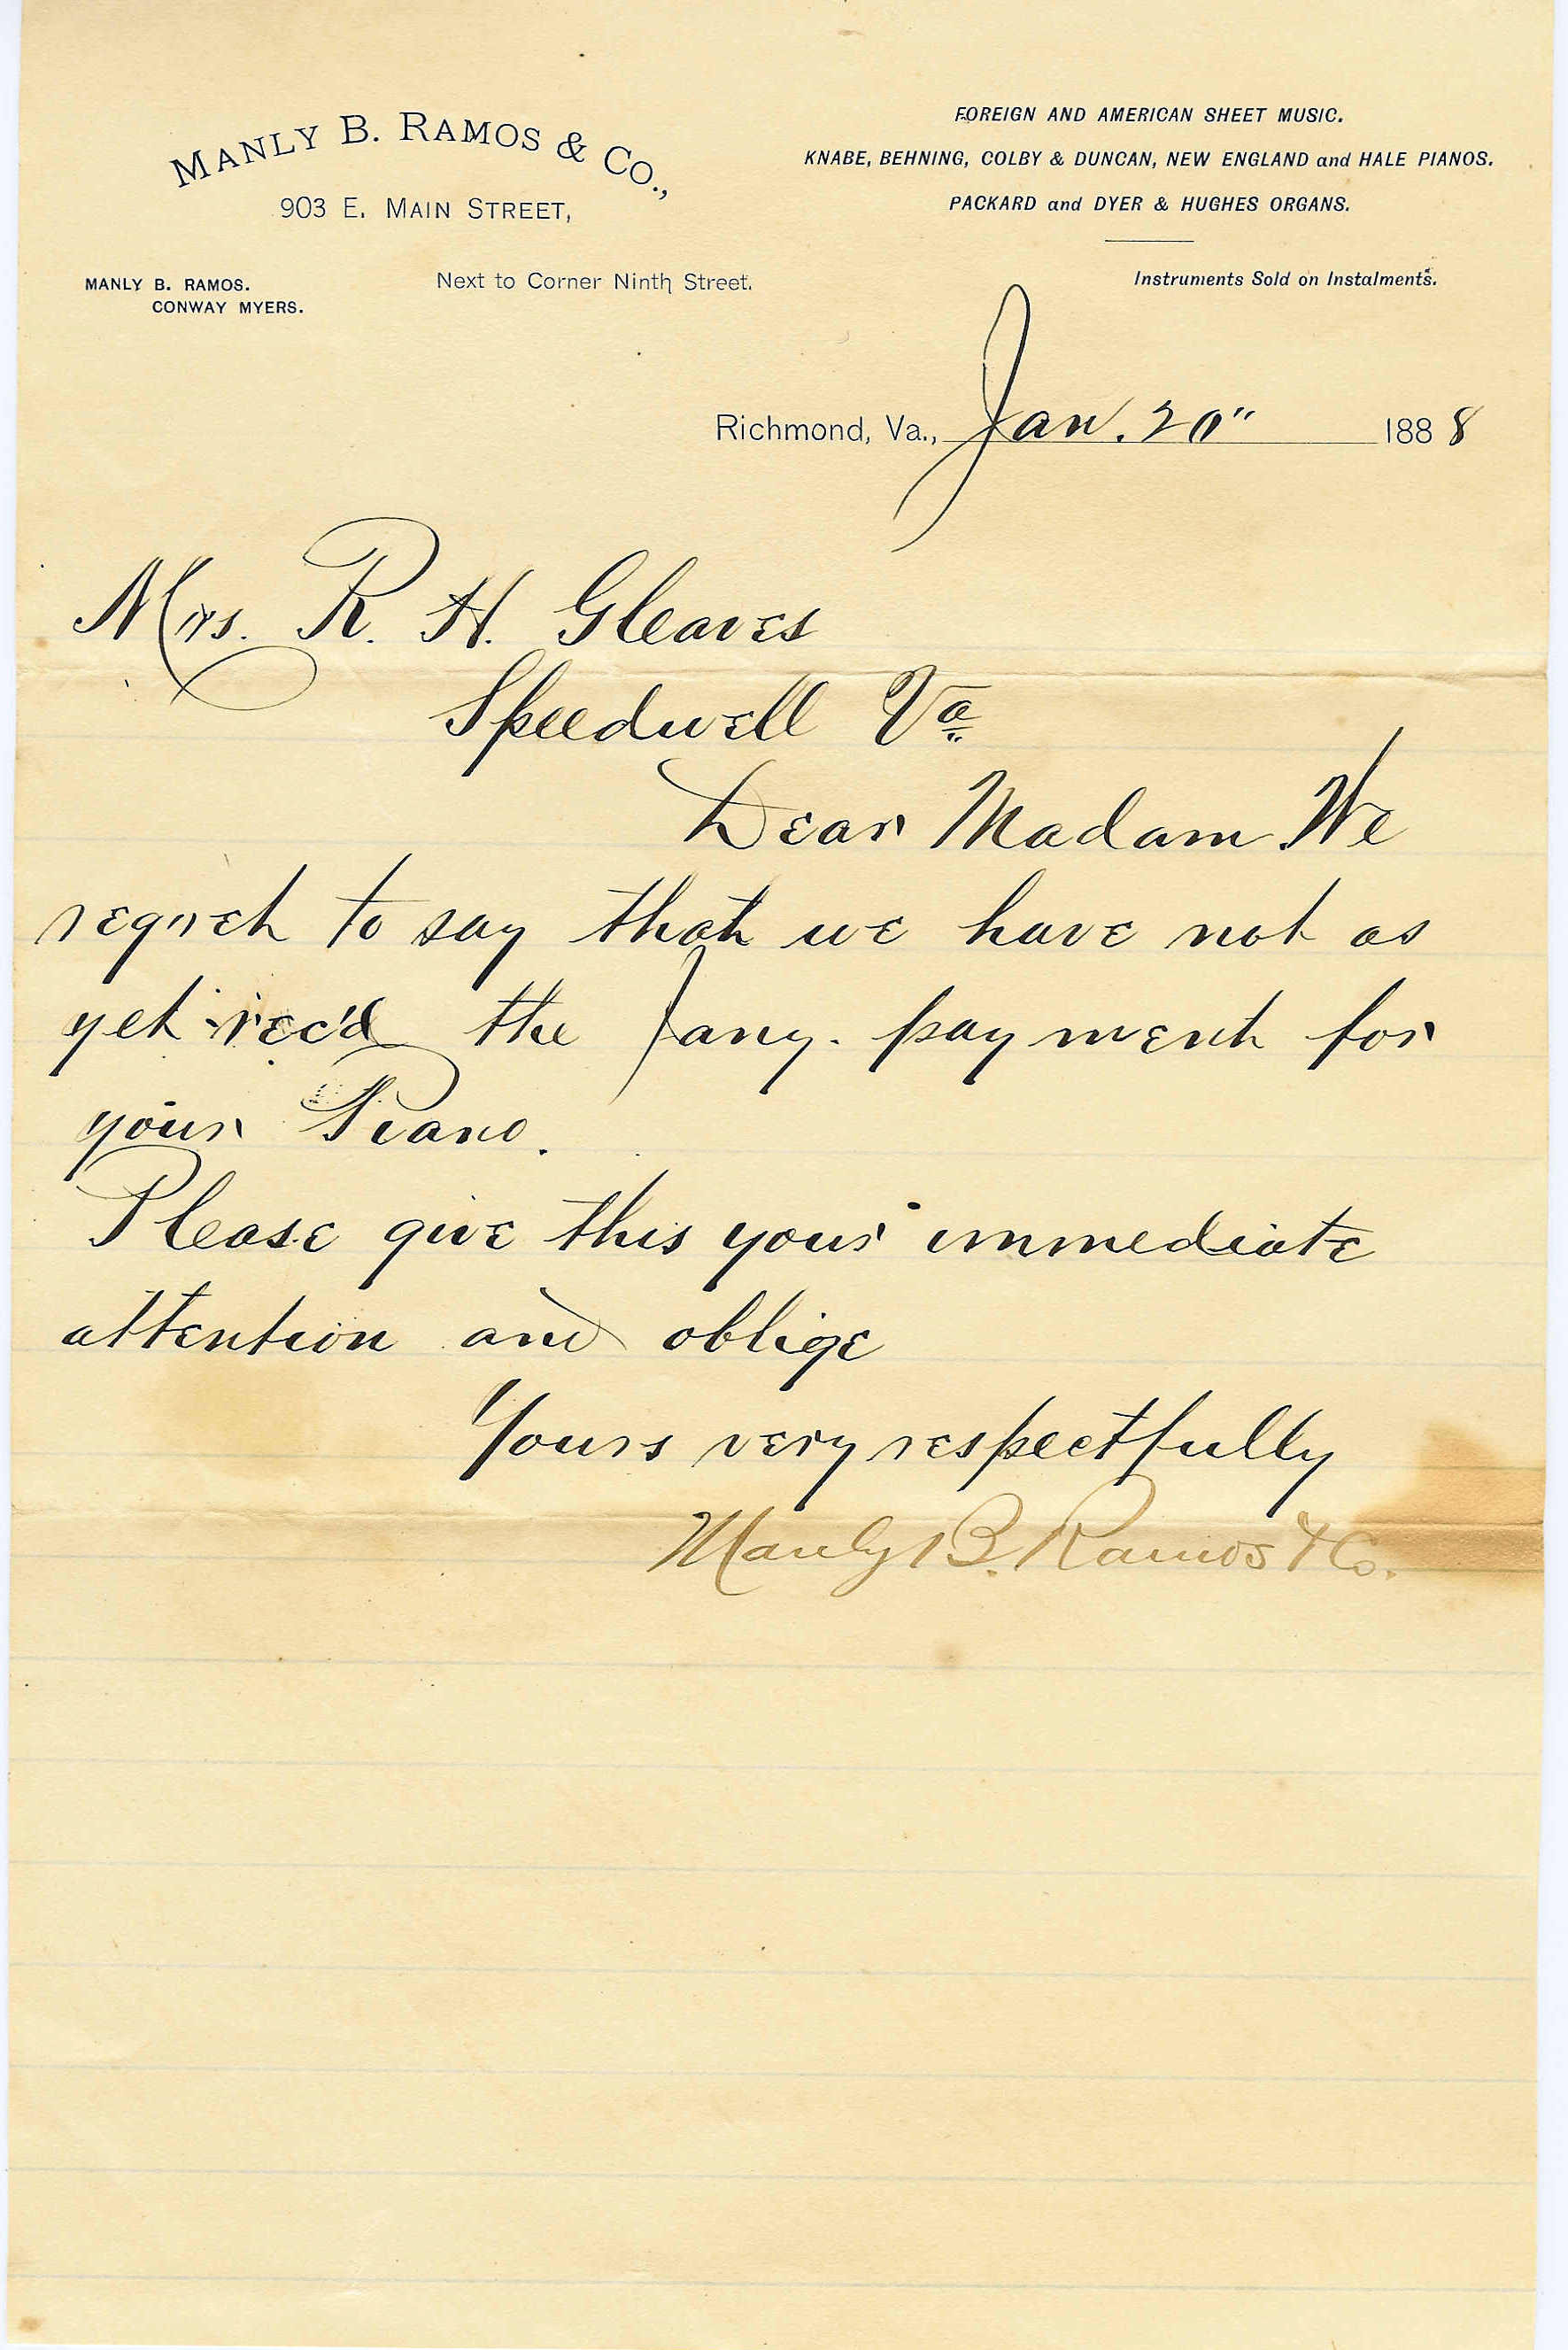 MANLY B. RAMOS & CO.,
903 E. MAIN STREET,
MANLY B. RAMOS.
CONWAY MYERS.
Next to Corner Ninth Street.
FOREIGN AND AMERICAN SHEET MUSIC.
KNABE, BEHNING, COLBY & DUNCAN, NEW ENGLAND and HALE PIANOS.
PACKARD and DYER & HUGHES ORGANS.
Instruments Sold on Instalments.
Richmond, Va., Jan. 20" 1888
Mrs. R. H. Gleaves
Speedwell Va
Dear Madam We
regret to say that we have not as
yet rec'd the Jany. payment for
your Piano.
Please give this your immediate
attention and oblige
Yours very respectfully
Manly B. Ramos & Co.